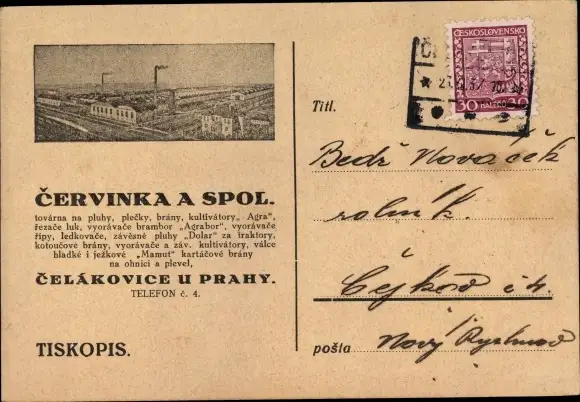 ČERVINKA A SPOL.
továrna na pluhy, plečky, brány, kultivátory „Agra“,
řezače luk, vyorávače brambor „Agrabor“, vyorávače
řípy, ledkovače, závěsné pluhy „Dolar“ za traktory,
kotoučové brány, vyorávače a záv. kultivátory, válce
hladké i ježkové „Mamut“ kartáčové brány
na ohnici a plevel,
ČELÁKOVICE U PRAHY.
TELEFON č. 4.
TISKOPIS.
ČESKOSLOVENSKO
30 HALÉŘŮ 30
Titl.
Bedř Nováček
rolník
Čejkov č 4.
pošta Nový Rychnov